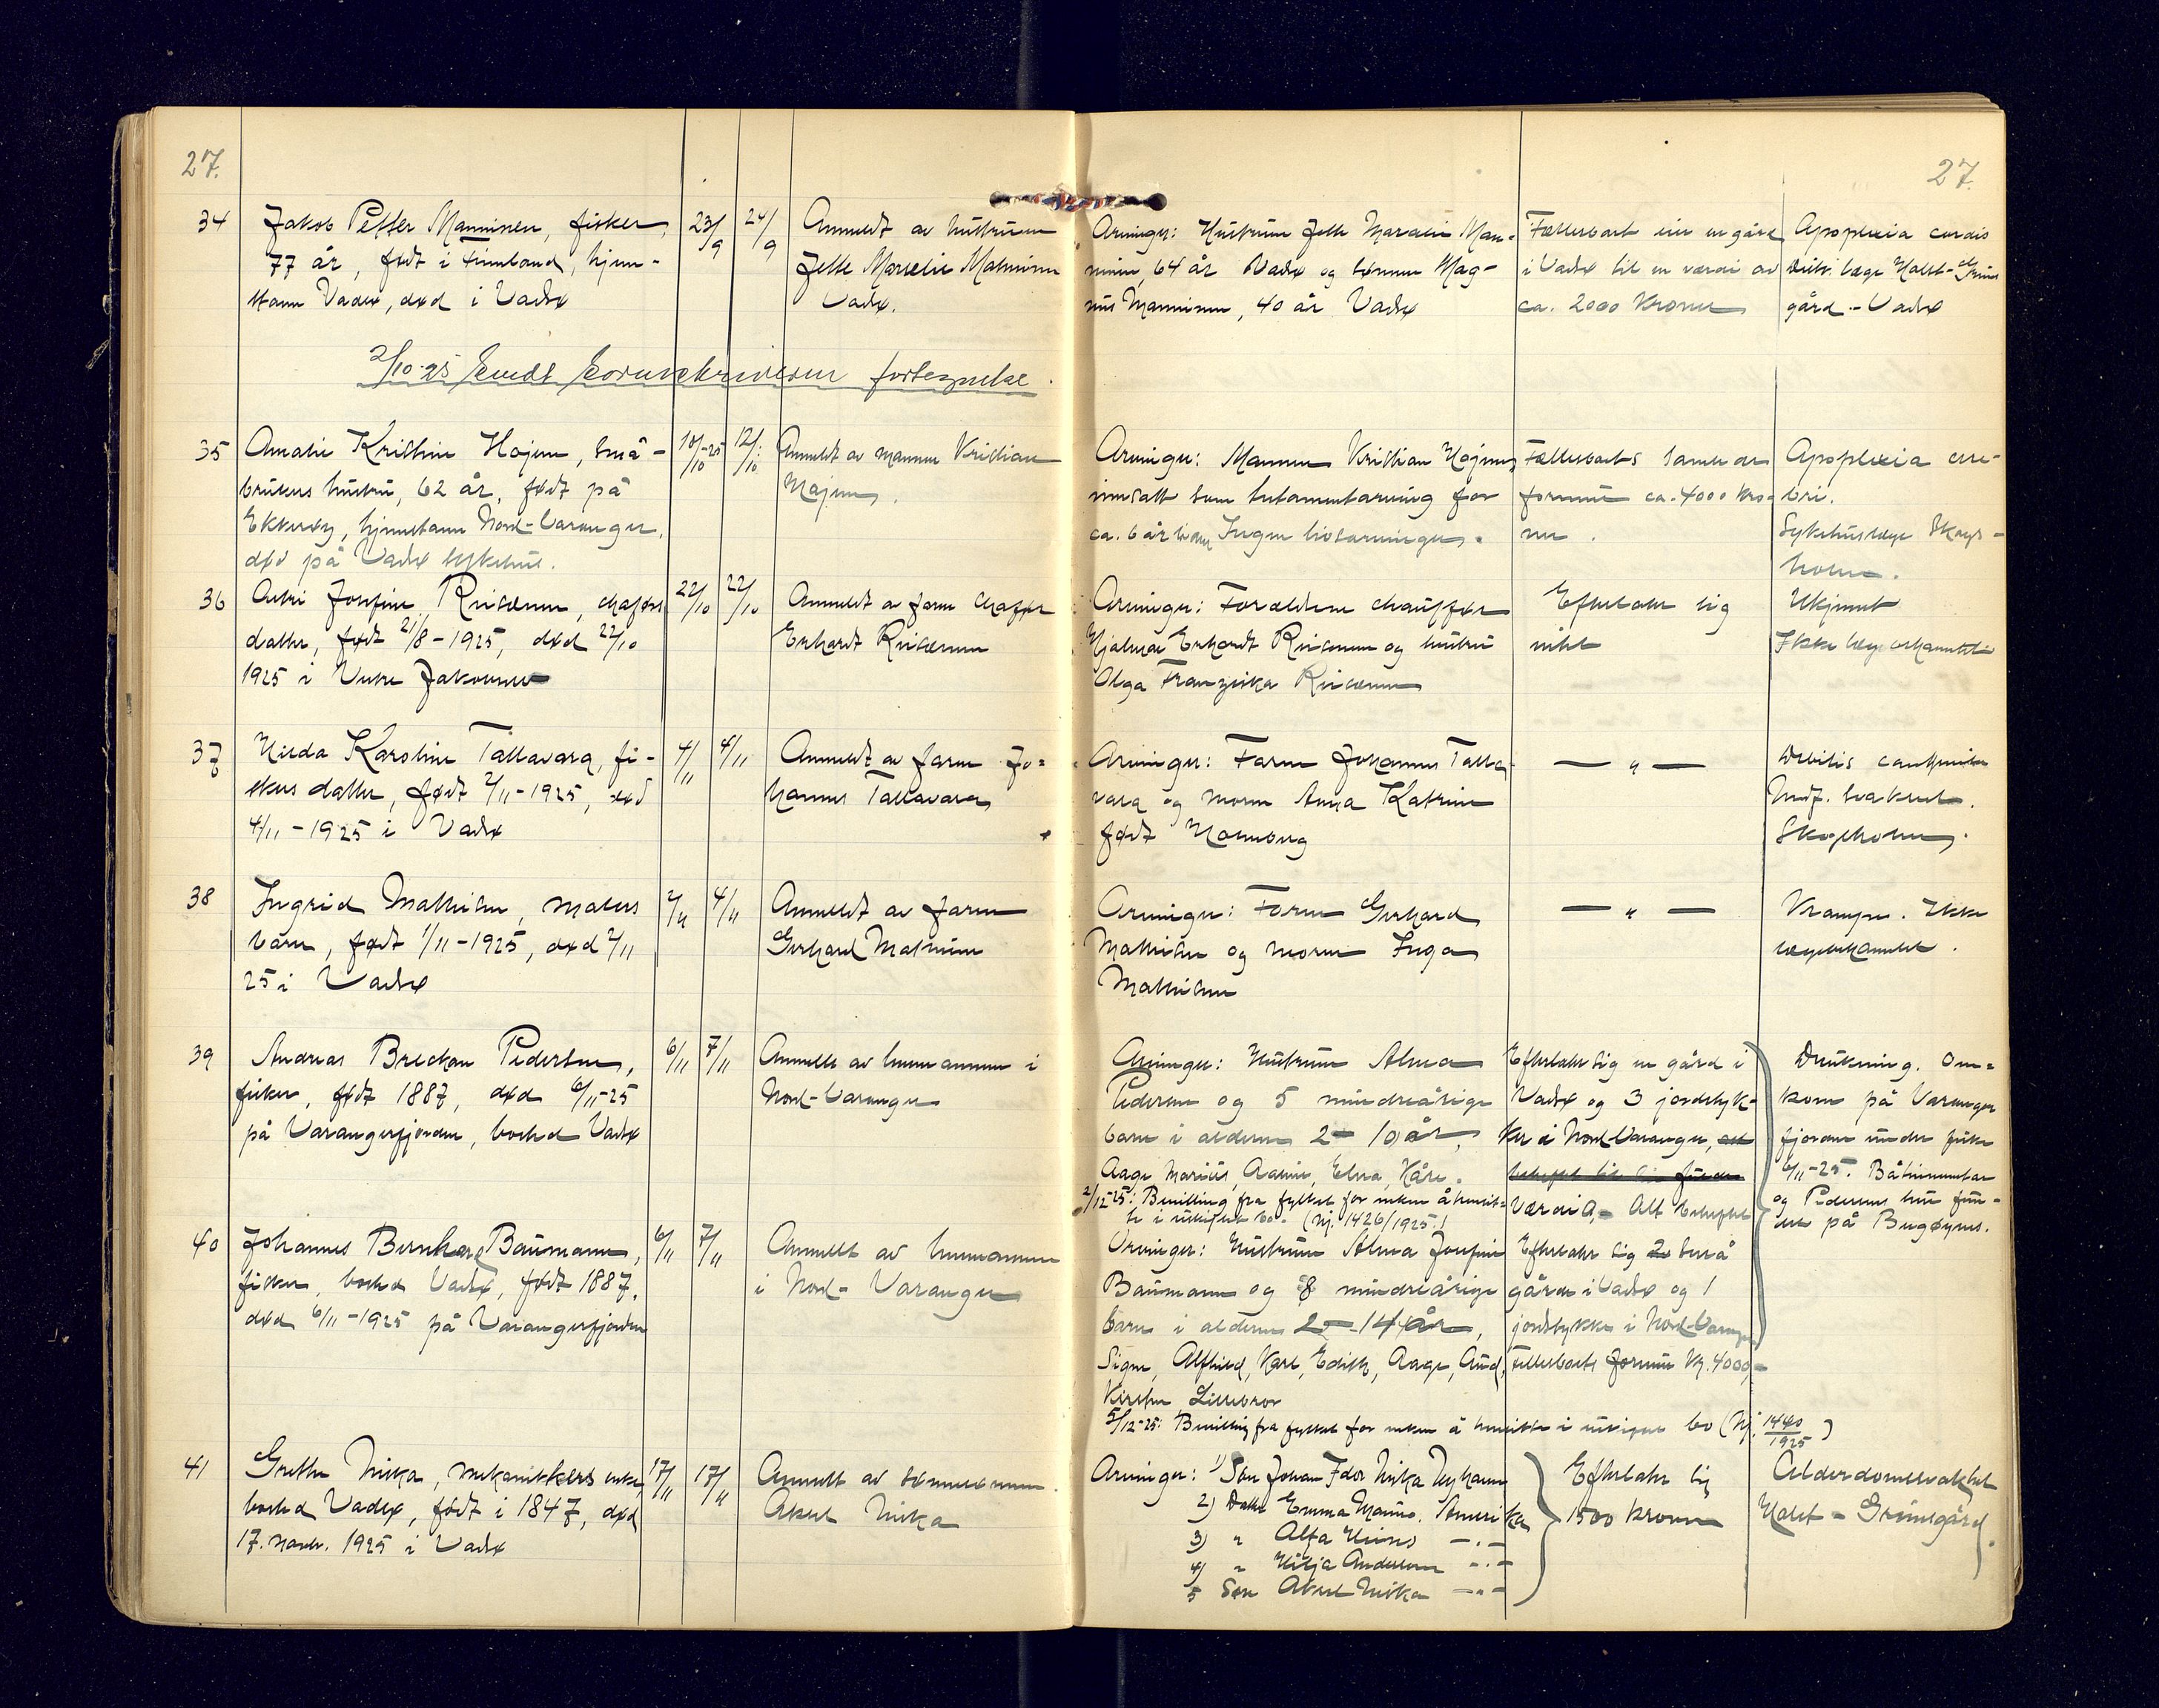 27.
27.
34
Jakob Petter Manninen, fisker,
77 år, født i Finnland, hjem-
stavn Vadsø, død i Vadsø
23/9
24/9
Anmeldt av hustruen
Jette Marselie Manninen
Vadsø.
Arvinger: Hustruen Jette Marselie Man-
ninen, 64 år Vadsø og sønnen Mag-
nus Manninen, 40 år Vadsø
Fællesboet eier en gård
i Vadsø til en værdi av
ca. 2000 kroner
Apoplexia cordis
Distr. læge Holst-Grims
gård - Vadsø
2/10-25 Sendt Sorenskriveren fortegnelse.
35
Amalie Kristine Hojem, små-
brukers hustru, 62 år, født på
Ekkerøy, hjemstavn Nord-Varanger,
død på Vadsø sykehus.
10/10-25
12/10
Anmeldt av mannen Kristian
Hojem.
Arvinger: Mannen Kristian Hojem
innsatt som testamentarving for
ca. 6 år siden Ingen livsarvinger.
Fællesboets samlede
formue ca. 4000 kro-
ner.
Apoplexia cere-
bri.
Sykehuslæge Skogs-
holm.
36
Josefine
datter, født 21/8-1925, død 22/10
1925 i Indre Jakobsnes
22/10
22/10
Anmeldt av faren
Erhardt
Arvinger: Forældrene chauffør
Hjalmar Erhardt og hustru
Olga Franziska
Efterlater sig
intet
Ukjent
Ikke lægebehandlet
37
Hilda Karoline Tallavara, fi-
skers datter, født 2/11-1925, død
4/11-1925 i Vadsø
4/11
4/11
Anmeldt av faren Jo-
hannes Tallavara
Arvinger: Faren Johannes Talla-
vara og moren Anna Katrine
født Hornborg
— " —
Debilis
Skogsholm.
38
Ingrid Mathisen, malers
barn, født 1/11-1925, død 2/11
25 i Vadsø
2/11
4/11
Anmeldt av faren
Gerhard Mathisen
Arvinger: Faren Gerhard
Mathisen og moren Inga
Mathisen
— " —
Krampe. Ikke
lægebehandlet.
39
Andreas Breckan Pedersen,
fisker, født 1887, død 6/11-25
på Varangerfjorden, bosted Vadsø
6/11
7/11
Anmeldt av lensmannen i
Nord-Varanger
Arvinger: Hustruen Alma
Pedersen og 5 mindreårige
barn i alderen 2-10 år,
Aage, Marius, Aasine, Elna, Kåre.
2/12-25: Bevilling fra fylket for enken å hensit-
te i uskiftet bo. (Nj. 1426/1925.)
Efterlater sig en gård i
Vadsø og 3 jordstyk-
ker i Nord-Varanger,
værdi Alt beheftet
Drukning. Om-
kom på Varanger
fjorden under fiske
6/11-25.
og Pedersens hue fun-
det på Bugøynes.
40
Johannes Bernhard Baumann,
fisker, bosted Vadsø, født 1887,
død 6/11-1925 på Varangerfjorden
6/11
7/11
Anmeldt av lensmannen
i Nord-Varanger
Arvinger: Hustruen Alma Josefine
Baumann og 8 mindreårige
barn i alderen 2-14 år,
Signe, Alfhild, Karl, Edith, Aage, Aud,
Kirsten Lillebror
5/12-25: Bevilling fra fylket for enken å hensitte i uskiftet bo (Nj. 1440/1925)
Efterlater sig 2 små
gårde i Vadsø og 1
jordstykke i Nord-Varanger
Fellesboets formue kr. 4000,-
41
Grethe Niska, mekanikkers enke,
bosted Vadsø, født i 1847, død
17. novbr. 1925 i Vadsø
17/11
17/11
Anmeldt av sønnen
Aksel Niska
Arvinger: 1) Søn Johan Niska Nyhamn
2) Datter Emma Amerika
3) " Alfa — " —
4) " Hilja Andersen — " —
5 Søn Aksel Niska — " —
Efterlater sig
1500 kroner
Alderdomssvakhet
Holst-Grimsgård.